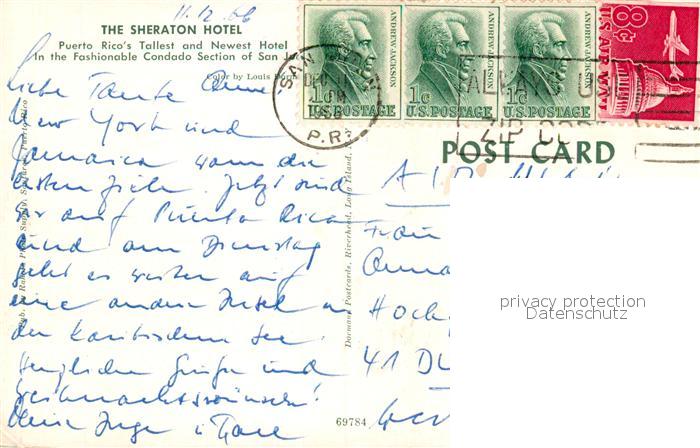 11.12.66
THE SHERATON HOTEL
Puerto Rico's Tallest and Newest Hotel
In the Fashionable Condado Section of San
Color by Louis
Liebe Tante Anne
New York und
Jamaica waren die
ersten Ziele. Jetzt sind
wir auf Puerto Rico
und am Dienstag
geht es weiter auf
eine andere Insel in
der karibischen See.
Herzliche Grüße und
Weihnachtswünsche!
Deine Inge u.
Puerto Rico
Dormand Postcards, Riverhead, Long Island,
69784
ANDREW JACKSON
1c
U.S. POSTAGE
ANDREW JACKSON
1c
U.S. POSTAGE
ANDREW JACKSON
1c
U.S. POSTAGE
8c
U.S. AIR MAIL
SAN
DEC 11
P.R.
ZIP
POST CARD
AIR
Frau
Anna
Hoch
41 DU
privacy protection
Datenschutz